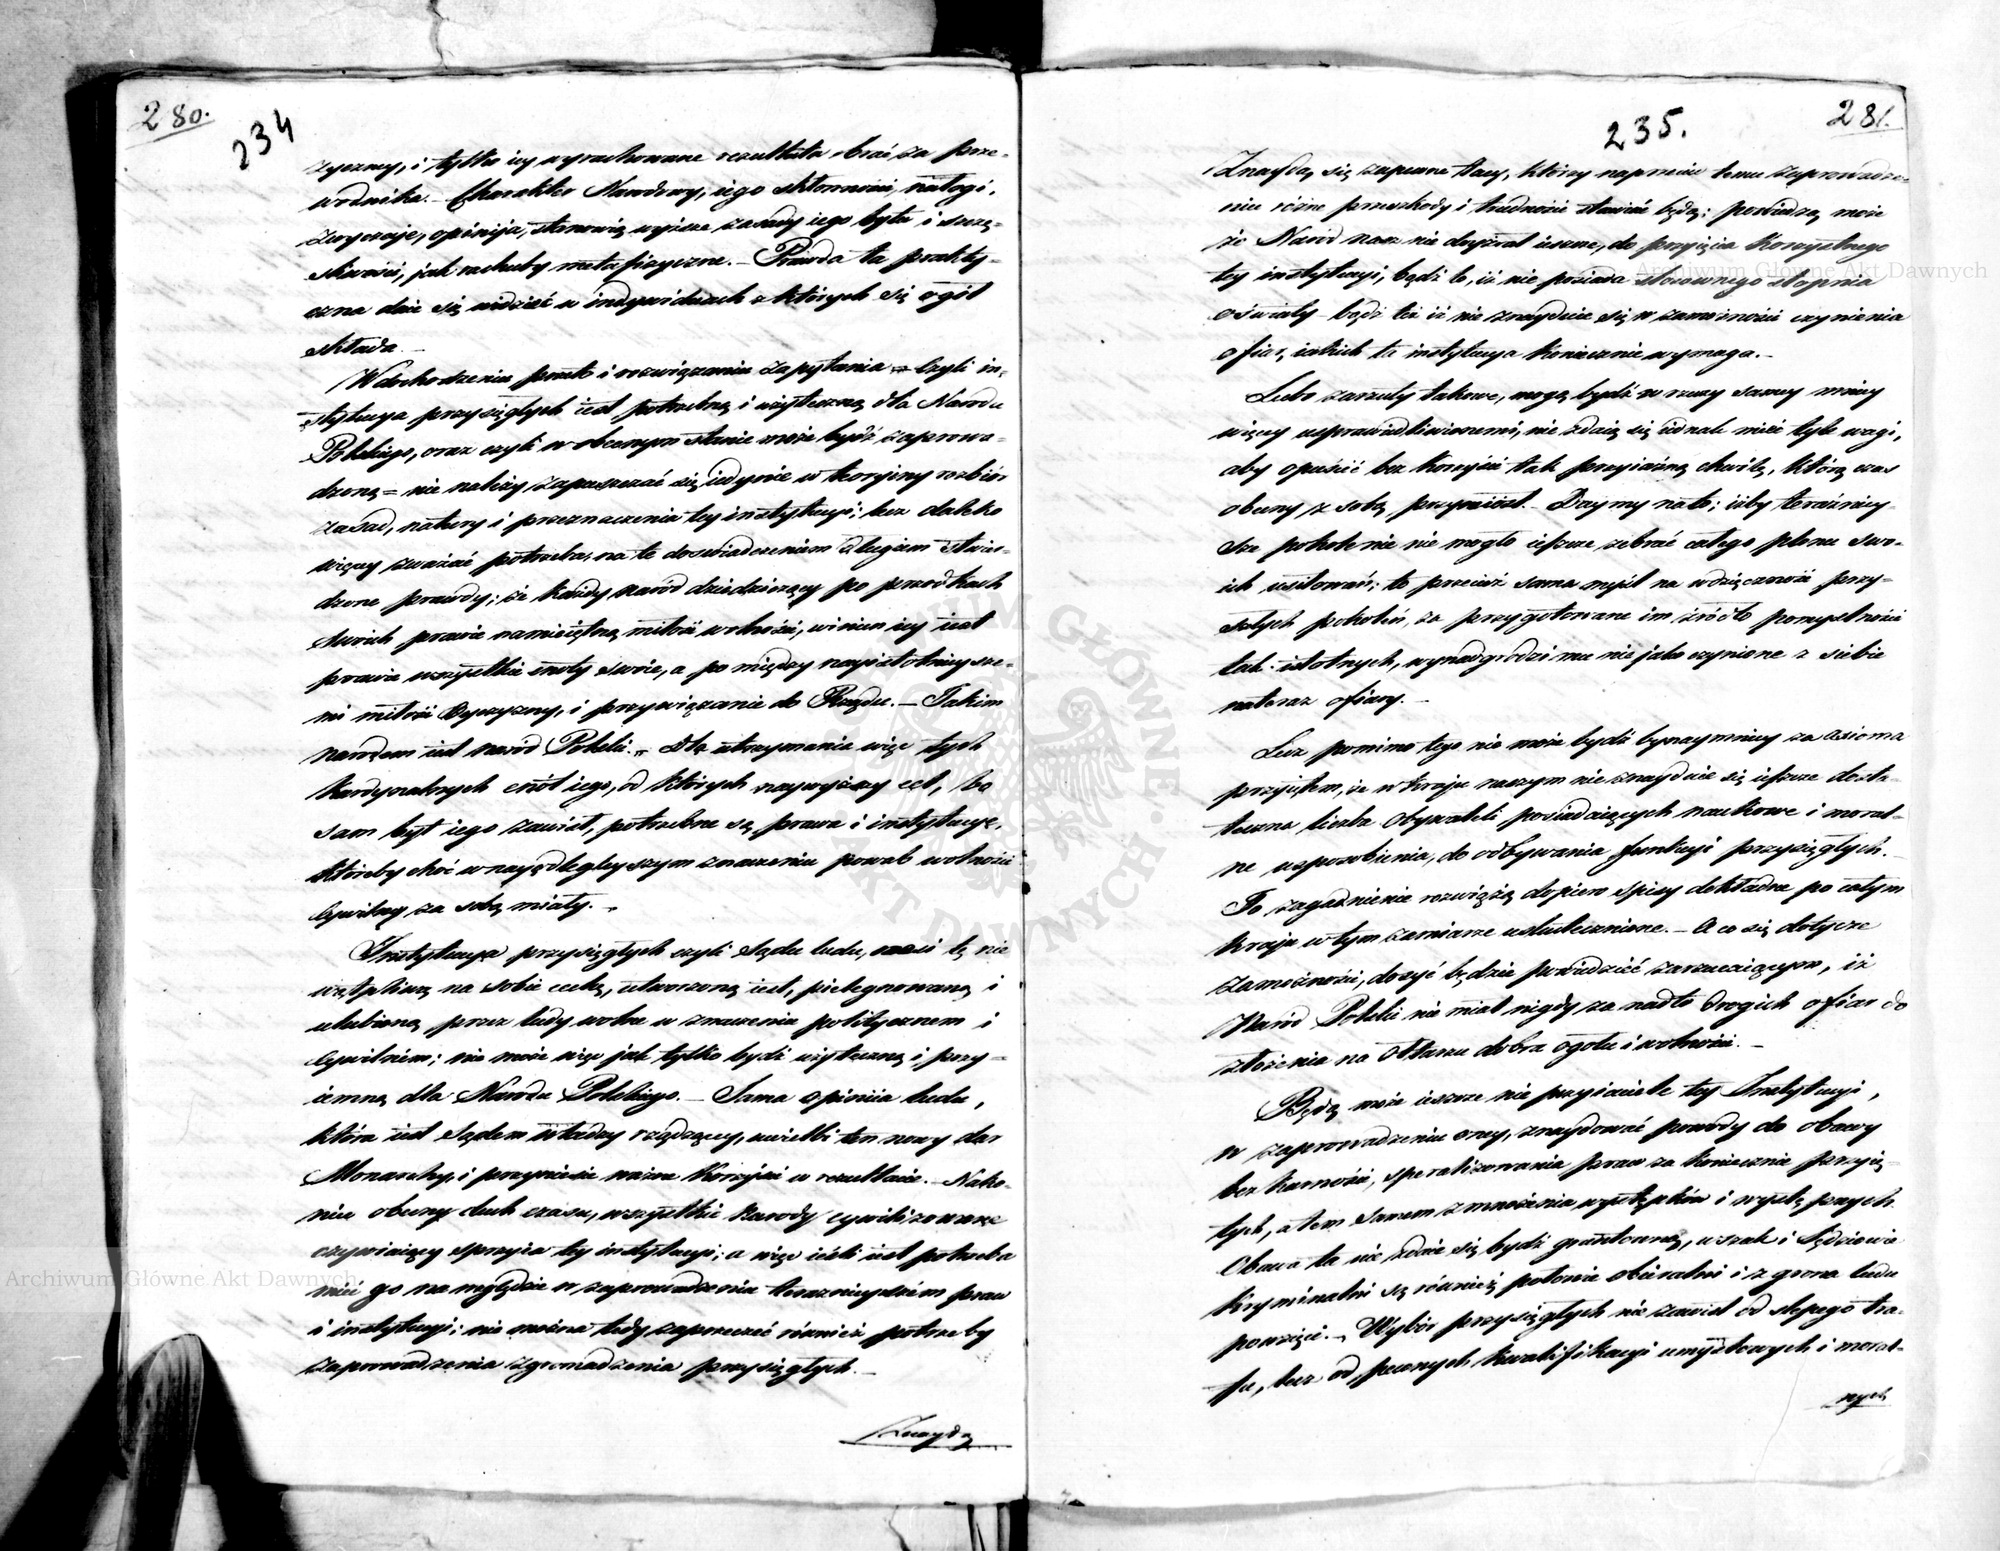 280.
234
zyczney, i tylko iey wyrachowane rezultata brać za prze-
wodnika. – Charakter Narodowy, iego skłonności, nałogi,
zwyczaje, opinija, stanowią wyższe zasady iego bytu i szczę-
śliwości, jak rachuby metafizyczne. – Prawda ta prakty-
czna daie się widzieć w indywiduach z których się ogół
składa. –
W dochodzeniu prawd i rozwiązaniu zapytania = Czyli in-
stytucya przysięgłych iest potrzebną i użyteczną dla Narodu
Polskiego, oraz czyli w obecnym stanie może bydź zaprowa-
dzoną = nie należy zapuszczać się iedynie w teoryiny rozbiór
zasad, natury i przeznaczenia tey instytucyi; lecz daleko
więcey zważać potrzeba, na te doświadczeniem długiem stwier-
dzone prawdy; że każdy naród dziedziczący po przodkach
swoich prawie namiętną miłość wolności, winien iey iest
prawie wszystkie cnoty swoie, a pomiędzy nayistotnieysze-
mi miłość Oyczyzny, i przywiązanie do Rządu. – Takim
narodem iest naród Polski. – Dla utrzymania więc tych
kardynalnych cnót iego, od których naywyższy cel, bo
sam byt iego zawisł, potrzebne są prawa i instytucye,
któreby choć w nayodlegleyszym znaczeniu powab wolności
cywilney za sobą miały. –
Instytucya przysięgłych czyli Sądu ludu, nosi tę nie
wątpliwą na sobie cechę, utworzoną iest, pielęgnowaną i
ulubioną przez ludy wolne w znaczeniu politycznem i
cywilném; nie może więc jak tylko bydź użyteczną i przy-
iemną dla Narodu Polskiego. – Sama opiniia ludu,
która iest Sądem władzy rządzącey, uwielbi ten nowy dar
Monarchy, i przyniesie ważne korzyści w rezultacie. – Nako-
niec obecny duch czasu, wszystkie narody cywilizowane
ożywiaiący sprzyia tey instytucyi; a więc ieśli iest potrzeba
mieć go na względzie w zaprowadzeniu teraźnieyszém praw
i instytucyi; nie można tedy zaprzeczeć również potrzeby
zaprowadzenia zgromadzenia przysięgłych. –
Znaydą
235.
281.
Znaydą się zapewne tacy, którzy naprzeciw temu zaprowadze-
niu różne przeszkody i trudności stawiać będą; powiedzą może
że Naród nasz nie doyźrał ieszcze, do przyięcia korzystnego
tey instytucyi, bądź to, iż nie posiada stosownego stopnia
oświaty – bądź też iż nie znayduie się w zamożności czynienia
ofiar, iakich ta instytucya koniecznie wymaga. –
Lubo zarzuty takowe, mogą bydź w rzeczy samey mniey
więcey usprawiedliwionemi, nie zdaią się iednak mieć tyle wagi,
aby opuścić bez korzyści tak przyiazną chwilę, którą czas
obecny z sobą przyniósł. – Daymy na to; iżby teraźniey-
sze pokolenie nie mogło ieszcze zebrać całego plonu swo-
ich usiłowań; to przecież sama myśl na wdzięczność przy-
szłych pokoleń, za przygotowane im źródło pomyślności
tak istotnych, wynadgrodzi mu niejako czynione z siebie
nateraz ofiary. –
Lecz pomimo tego nie może bydź bynaymniey za axioma
przyiętem, że w kraju naszym nie znayduie się ieszcze dosta-
teczna liczba Obywateli posiadaiących naukowe i moral-
ne usposobienia, do odbywania funkcyi przysięgłych. –
To zagadnienie rozwiążą dopiero spisy dokładne po całym
kraju w tym zamiarze uskutecznione. – A co się dotycze
zamożności, dosyć będzie powiedzieć zarzucaiącym, iż
Naród Polski nie miał nigdy za nadto drogich ofiar do
złożenia na Ołtarzu dobra ogółu i wolności. –
Będą może ieszcze nie przyiaciele tey Instytucyi,
w zaprowadzeniu oney, znaydować powody do obawy
bez karności, sparaliżowania praw za koniecznie przyię-
tych, a tem samem zmnożenia występków i występnych.
Obawa ta nie zdaie się bydź gruntowną, wszak i Sędziowie
Kryminalni są również połowie obieralni i z grona ludu
powzięci. – Wybór przysięgłych nie zawisł od ślepego tra-
fu, lecz od pewnych kwalifikacyi umysłowych i moral-
nych
Archiwum Główne Akt Dawnych
Archiwum Główne Akt Dawnych
ARCHIWUM GŁÓWNE AKT DAWNYCH